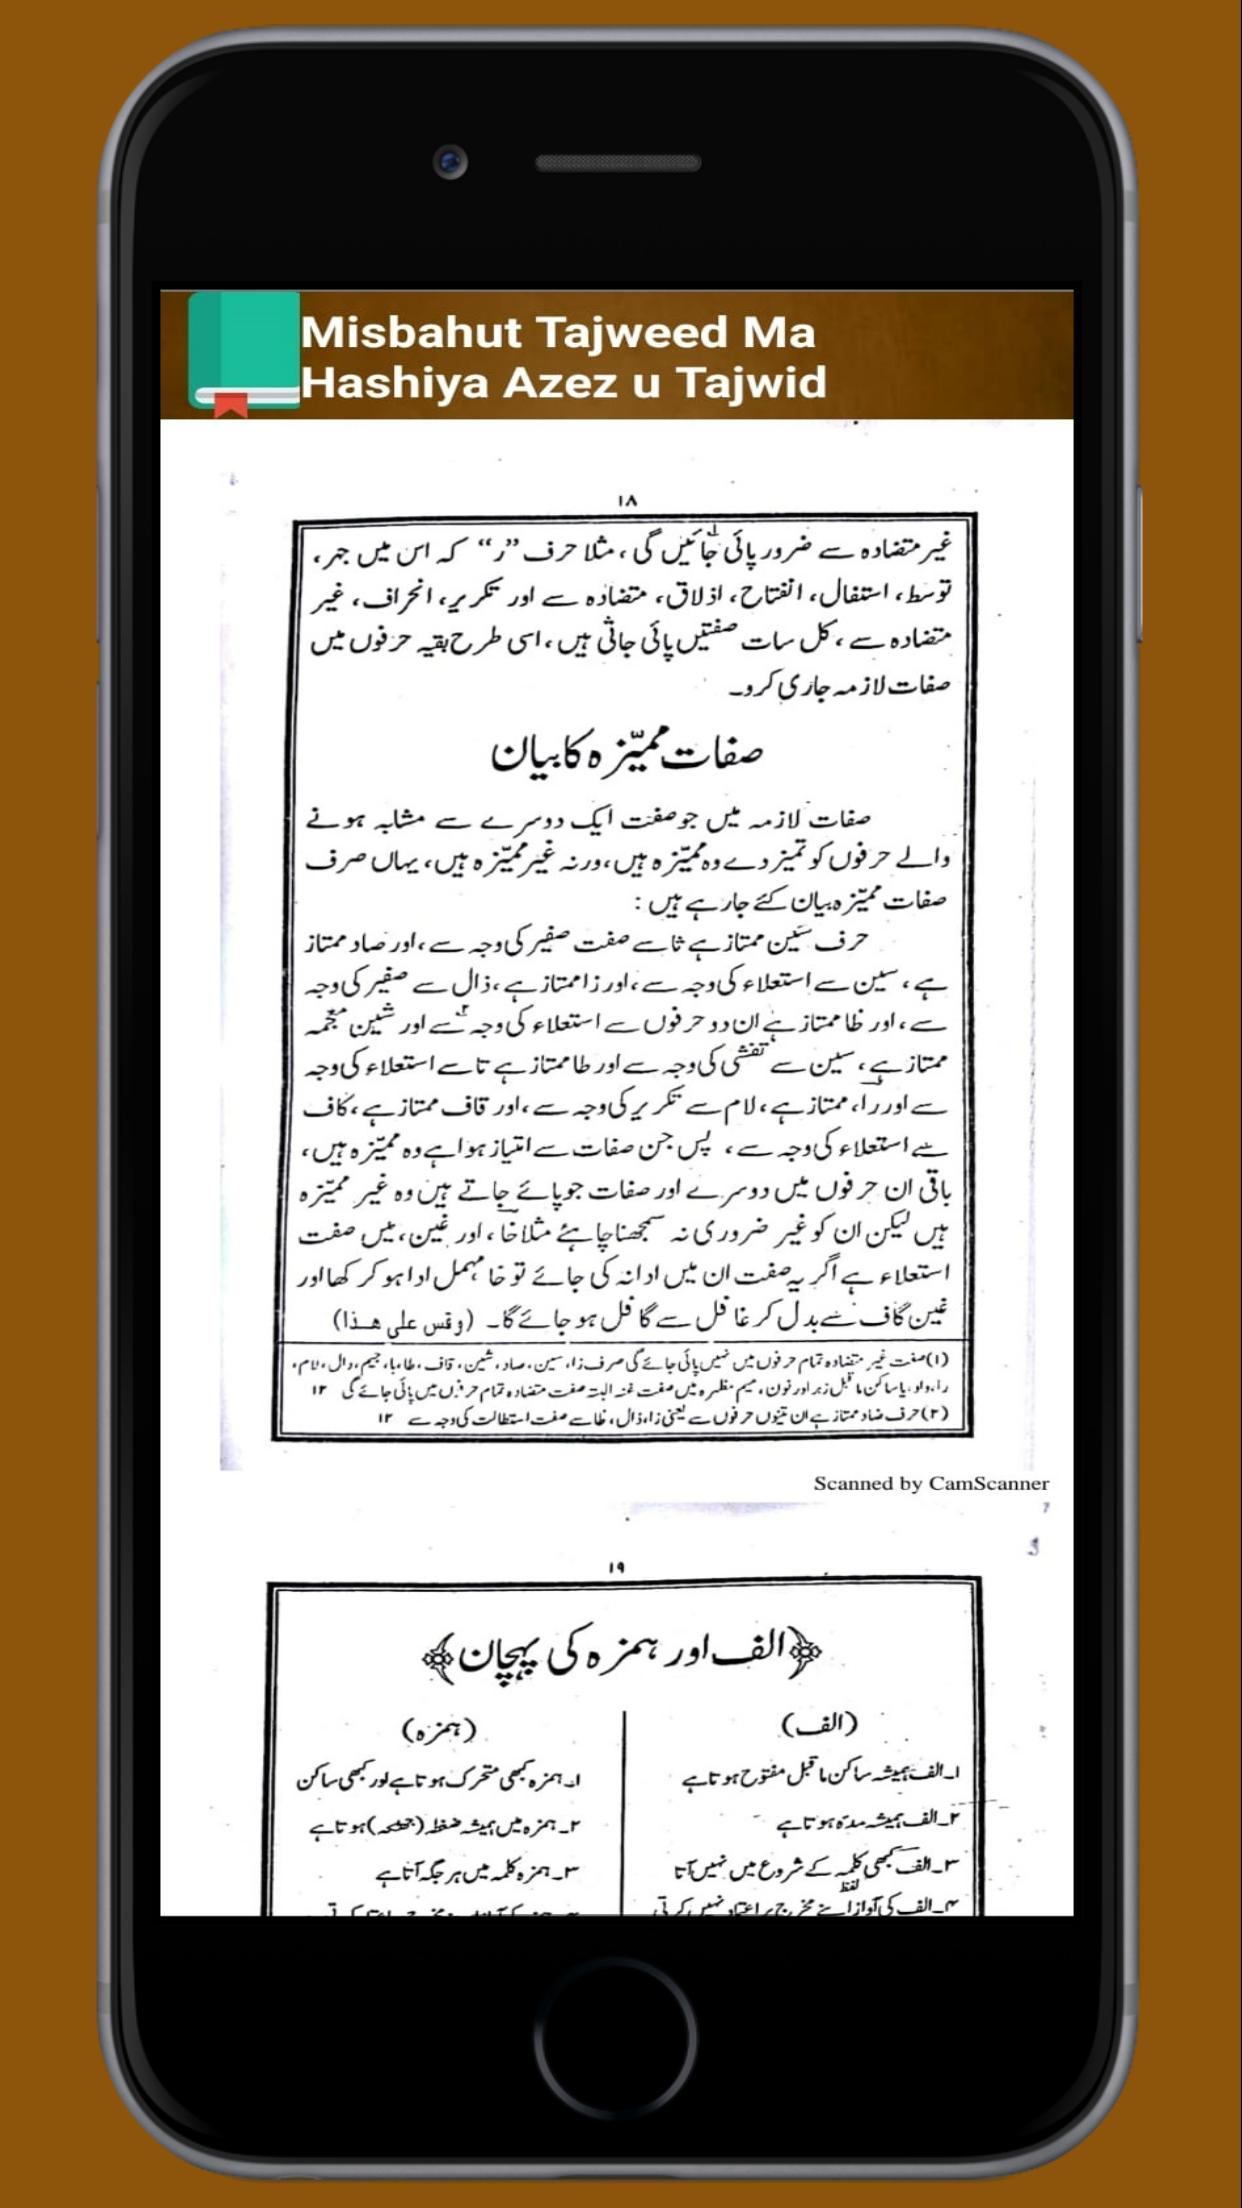 Misbahut Tajweed Ma
Hashiya Azez u Tajwid
۱۸
غیر متضادہ سے ضرور پائی جائیں گی، مثلا حرف ”ر“ کہ اس میں جہر،
توسط، استفال، انفتاح، اذلاق، متضادہ سے اور تکریر، انحراف، غیر
متضادہ سے، کل سات صفتیں پائی جاتی ہیں، اسی طرح بقیہ حرفوں میں
صفات لازمہ جاری کرو۔
صفات ممیّزہ کا بیان
صفات لازمہ میں جو صفت ایک دوسرے سے مشابہ ہونے
والے حرفوں کو تمیز دے وہ ممیّزہ ہیں، ورنہ غیر ممیّزہ ہیں، یہاں صرف
صفات ممیّزہ بیان کئے جارہے ہیں :
حرف سین ممتاز ہے ثا سے صفت صفیر کی وجہ سے، اور صاد ممتاز
ہے، سین سے استعلاء کی وجہ سے، اور زا ممتاز ہے، ذال سے صفیر کی وجہ
سے، اور ظا ممتاز ہے ان دو حرفوں سے استعلاء کی وجہ سے اور شین معجمہ
ممتاز ہے، سین سے تفشی کی وجہ سے اور طا ممتاز ہے تا سے استعلاء کی وجہ
سے اور را، ممتاز ہے، لام سے تکریر کی وجہ سے، اور قاف ممتاز ہے، کاف
سے استعلاء کی وجہ سے، پس جن صفات سے امتیاز ہوا ہے وہ ممیّزہ ہیں،
باقی ان حرفوں میں دوسرے اور صفات جو پائے جاتے ہیں وہ غیر ممیّزہ
ہیں لیکن ان کو غیر ضروری نہ سمجھنا چاہئے مثلا خا، اور غین، میں صفت
استعلاء ہے اگر یہ صفت ان میں ادا نہ کی جائے تو خا مہمل ادا ہو کر کھا اور
غین گاف سے بدل کر غافل سے گافل ہو جائے گا۔ (وقس علی ھذا)
(۱) صفت غیر متضادہ تمام حرفوں میں نہیں پائی جائے گی صرف زا، سین، صاد، شین، قاف، طا، با، جیم، دال، لام،
را، واو، یا ساکن ما قبل زبر اور نون، میم مظہرہ میں صفت غنہ البتہ صفت متضادہ تمام حرفوں میں پائی جائے گی ۱۲
(۲) حرف ضاد ممتاز ہے ان تینوں حرفوں سے یعنی زا، ذال، ظا سے صفت استطالت کی وجہ سے ۱۲
Scanned by CamScanner
۱۹
الف اور ہمزہ کی پہچان
(الف)
(ہمزہ)
۱۔ الف ہمیشہ ساکن ما قبل مفتوح ہوتا ہے
۱۔ ہمزہ کبھی متحرک ہوتا ہے اور کبھی ساکن
۲۔ الف ہمیشہ مدّہ ہوتا ہے
۲۔ ہمزہ میں ہمیشہ ضغطہ (جھٹکہ) ہوتا ہے
۳۔ الف کبھی کلمہ کے شروع میں نہیں آتا
لفظ
۳۔ ہمزہ کلمہ میں ہر جگہ آتا ہے
۴۔ الف کی آواز اپنے مخرج پر اعتماد نہیں کرتی